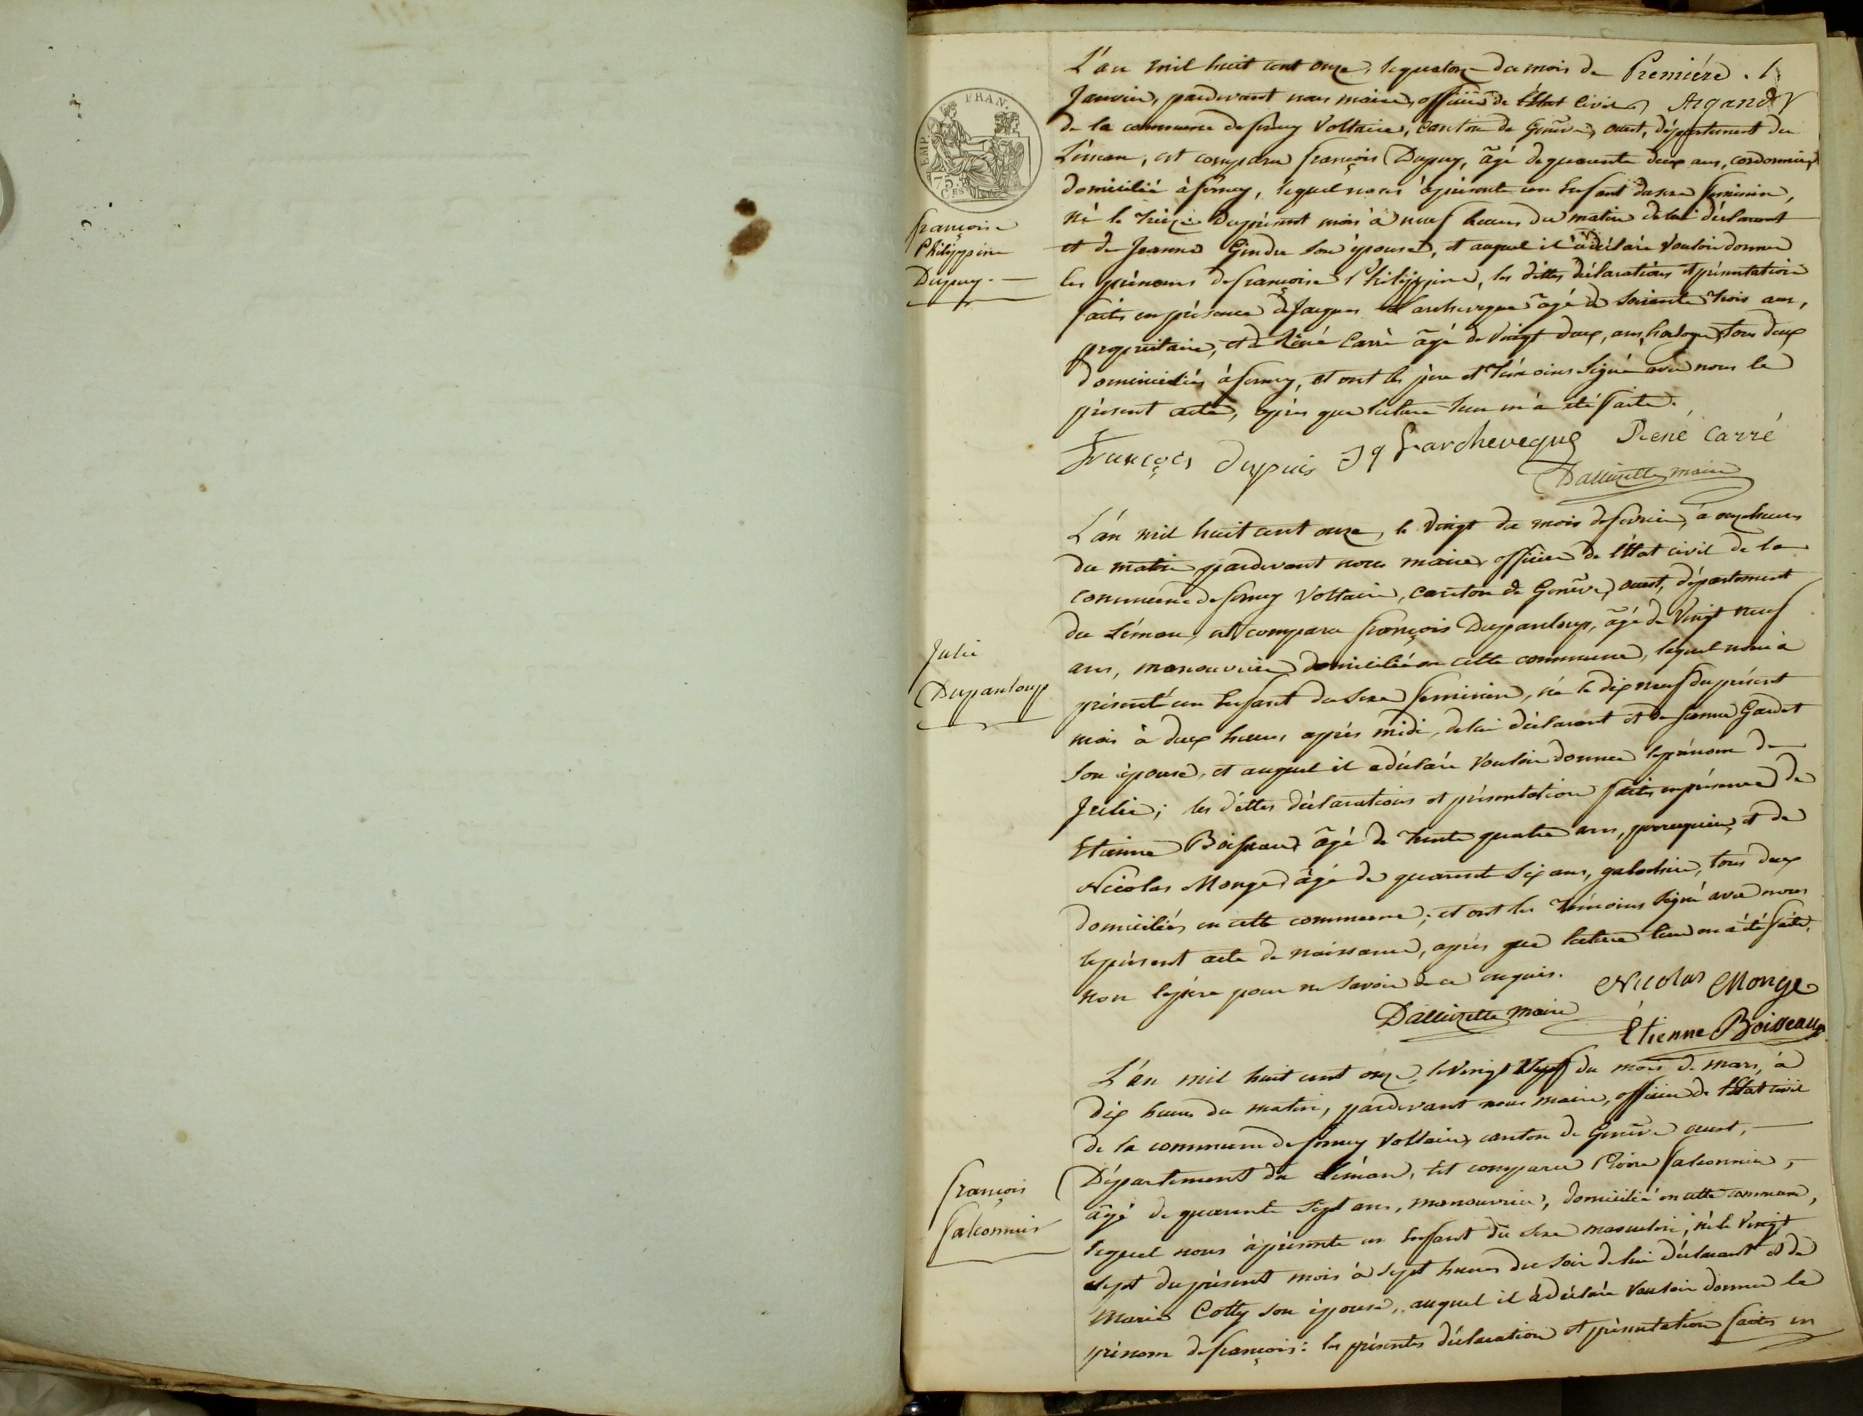 L'an mil huit cent onze, le quatorze du mois de Première. 1
Janvier, pardevant nous maire, officier de l'Etat Civil Argand
de la commune de ferney Voltaire, canton de Genève, ouest, département du
Léman, est comparu françois Dupuy, âgé de quarante deux ans, cordonnier,
domicilié à ferney, lequel nous à présenté un Enfant du sexe feminin,
né le treize du présent mois à neuf heures du matin de lui déclarant
et de Jeanne Gindre son épouse, et auquel il à déclaré vouloir donner
les prénoms de françoise Philippine, les dittes déclarations et présentation
faites en présence de Jaques Larcheveque âgé de soixante trois ans,
propriétaire, et de Réné Carré âgé de vingt deux, ans, horloger, tous deux
domiciliés à ferney, et ont les père et témoins signé avec nous le
présent acte, après que lecture leur en a été faite.
François dupuis Jq Larcheveque René Carré
Dallizette maire
françoise
Philippine
Dupuy.
L'án mil huit cent onze, le vingt du mois de fevrier, à onze heures
du matin pardevant nous maire, officier de l'Etat civil de la
commune de ferney Voltaire, canton de Genève, ouest, département
du Léman, est comparu françois Dupanloup, âgé de vingt neuf
ans, manouvrier domicilié en cette commune, lequel nous à
présenté un Enfant du sexe feminin, né le dix neuf du présent
mois à deux heures après midi, de lui déclarant et de Jeanne Gardet
son épouse, et auquel il a déclaré vouloir donner le prénom de
Julie; les dittes déclarations et présentation faites en présence de
Etienne Boisseau âgé de trente quatre ans, perruquier, et de
Nicolas Monge âgé de quarente six ans, galochier, tous deux
domiciliés en cette commune; et ont les témoins signé avec nous
le présent acte de naissance, après que lecture leur en a été faite,
non le père pour ne savoir de ce enquis.
Nicolas Monge
Dallizette maire
Etienne Boisseau
Julie
Dupanloup
L'án mil huit cent onze, le vingt du mois de mars, à
dix heures du matin, pardevant nous maire, officier de l'Etat civil
de la commune de ferney Voltaire, canton de Genève ouest,
Département du Léman, est comparu Pierre falconnier,
âgé de quarente sept ans, manouvrier, domicilié en cette commune,
lequel nous à présenté un Enfant du sexe masculin, né le vingt
sept du présent mois à sept heures du soir de lui déclarant et de
Marie Cotty son épouse, auquel il à déclaré vouloir donner le
prénom de françois: les présentes déclaration et présentation faites en
François
falconnier